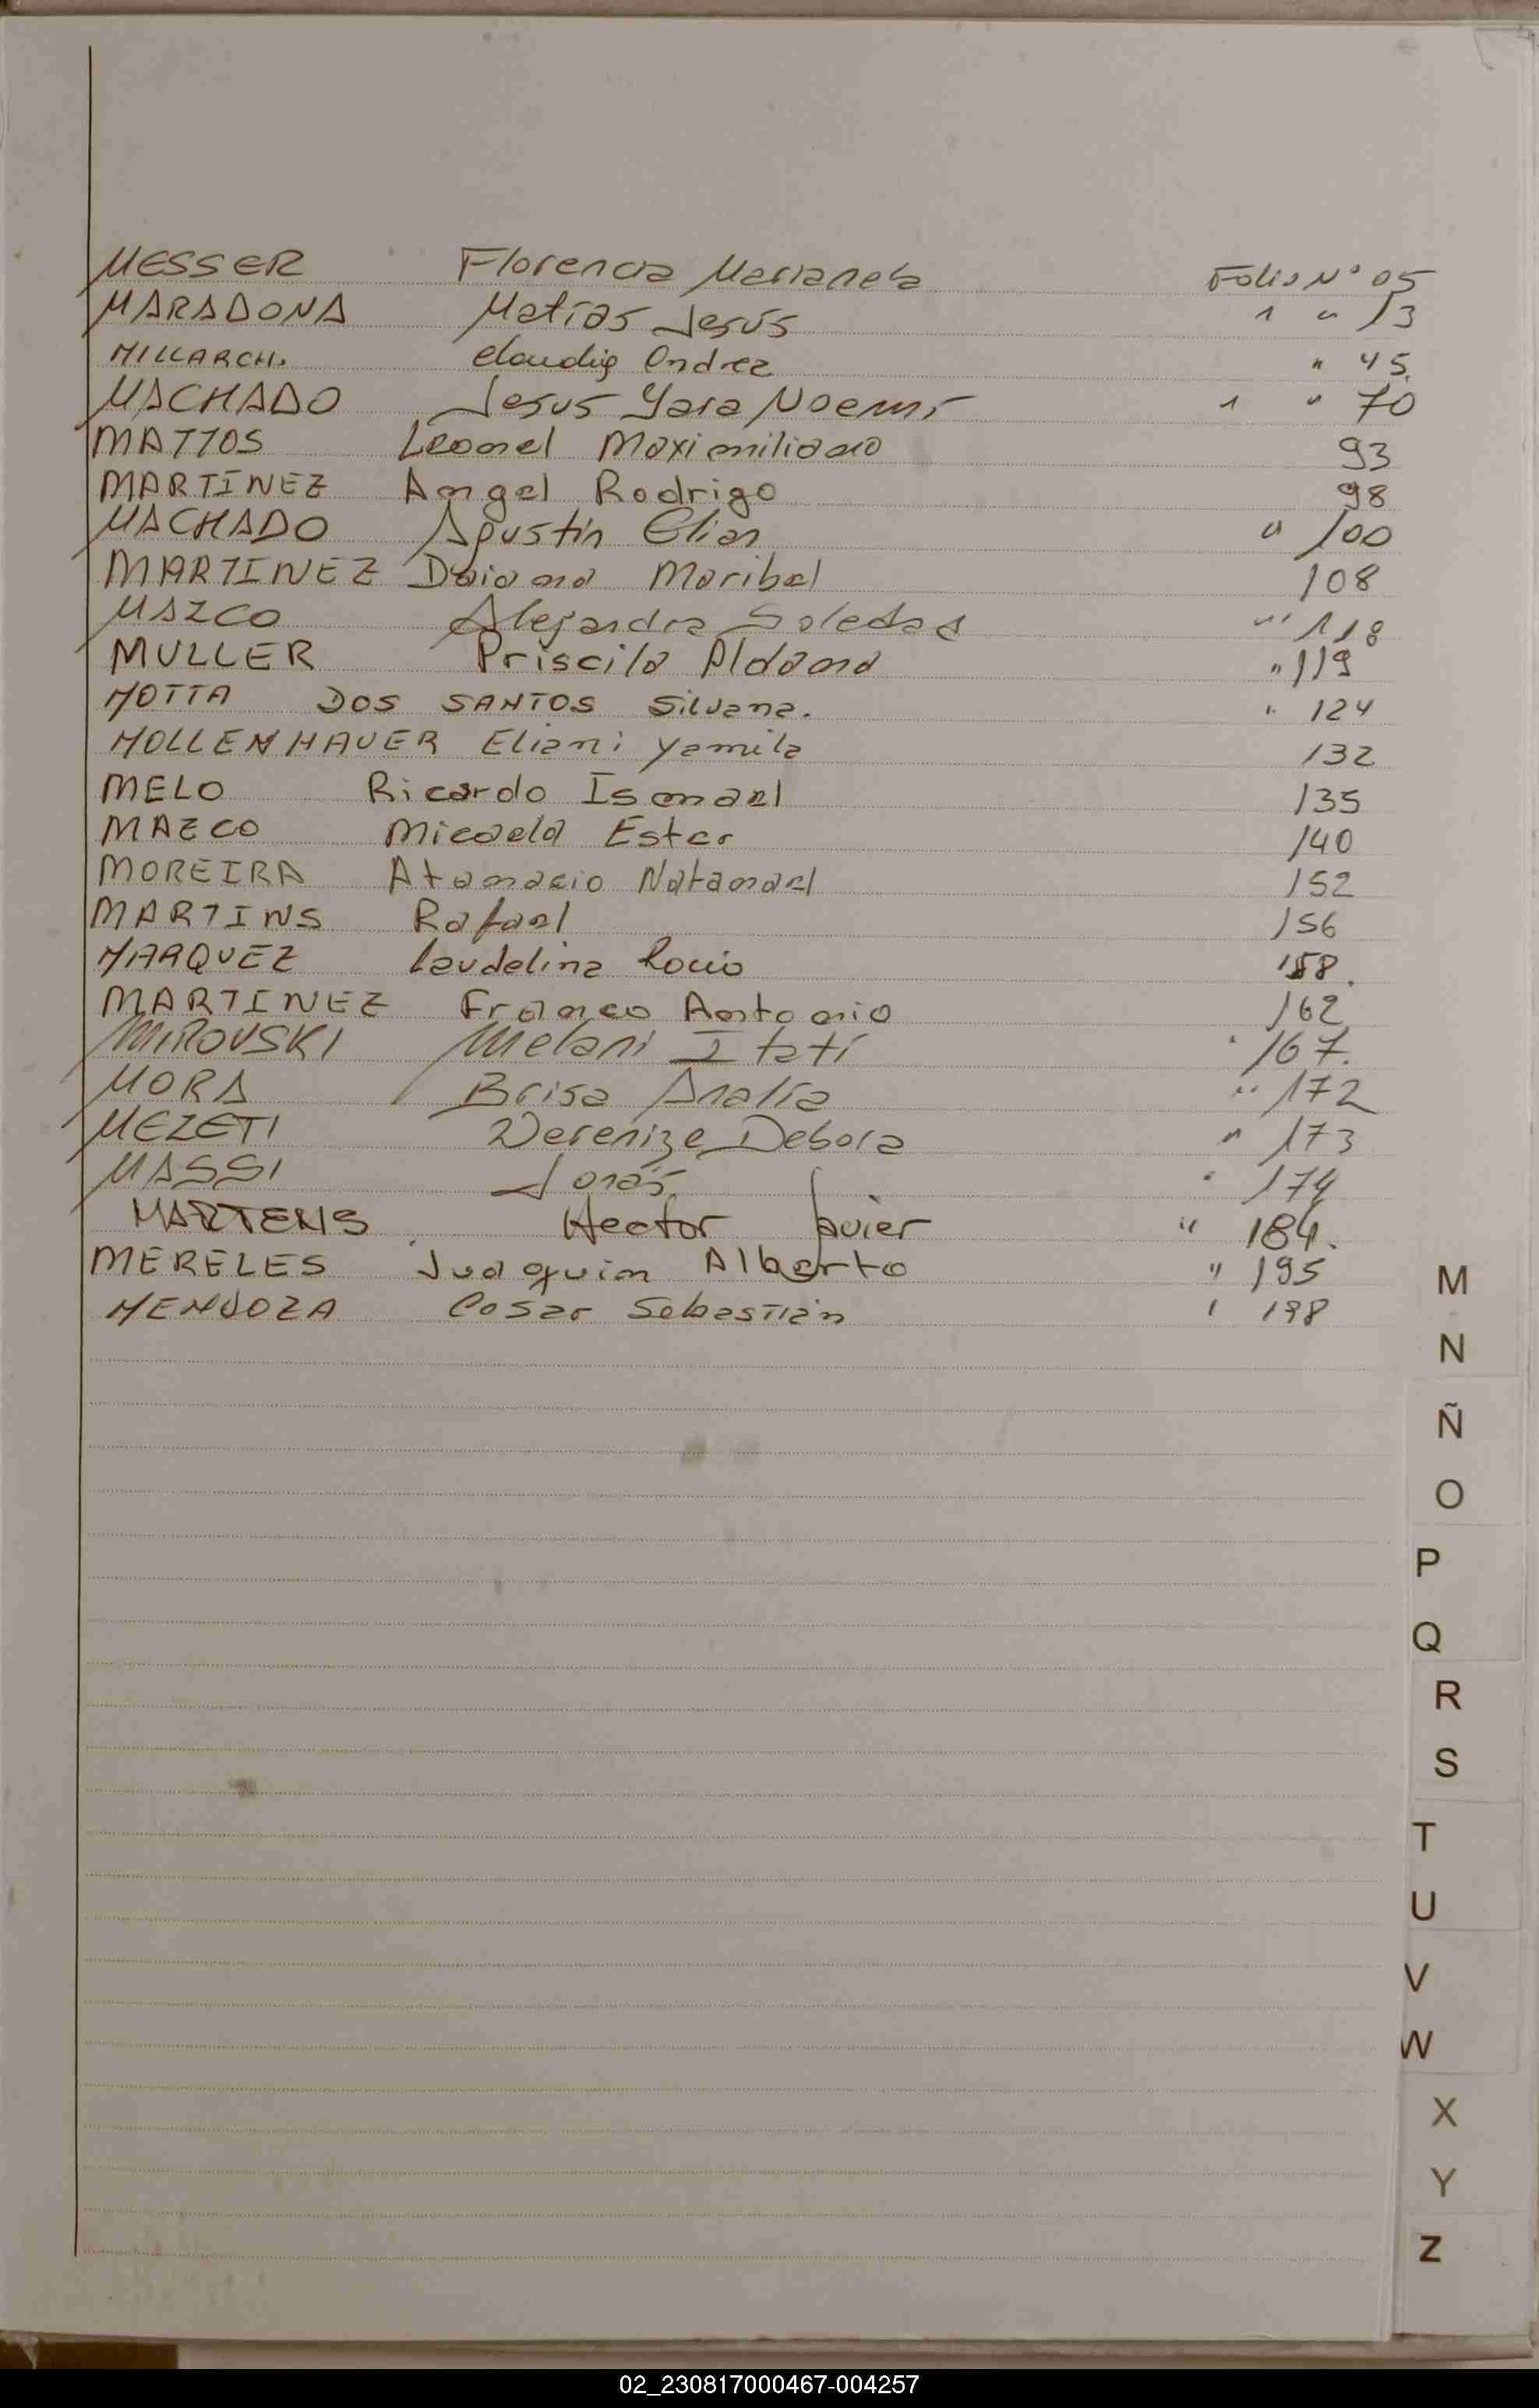 MESSER Florencia Marianela Folio N° 05
MARADONA Matías Jesús 1 " 13
MILLARCH. Claudia Ondrea " 45.
MACHADO Jesus Yara Noemí 1 " 70
MATTOS Leonel Maximiliano 93
MARTÍNEZ Angel Rodrigo 98
MACHADO Agustín Elian " 100
MARTINEZ Daiana Maribel 108
MAZCO Alejandra Soledad " 118
MULLER Priscila Aldana " 119
MOTTA DOS SANTOS Silvana. " 124
MOLLENHAUER Eliani Yamila 132
MELO Ricardo Ismael 135
MAZCO Micaela Ester 140
MOREIRA Atanacio Natanael 152
MARTINS Rafael 156
MARQUEZ Laudelina Rocio 158.
MARTINEZ Franco Antonio 162
MIROVSKI Melani Itatí " 167.
MORA Brisa Analía " 172
MEZETI Werenize Debora " 173
MASSI Jonás " 174
MARTENS Hector Javier " 184.
MERELES Juaquin Alberto " 195
MENDOZA Cesar Sebastián " 198
M
N
Ñ
O
P
Q
R
S
T
U
V
W
X
Y
Z
02_230817000467-004257